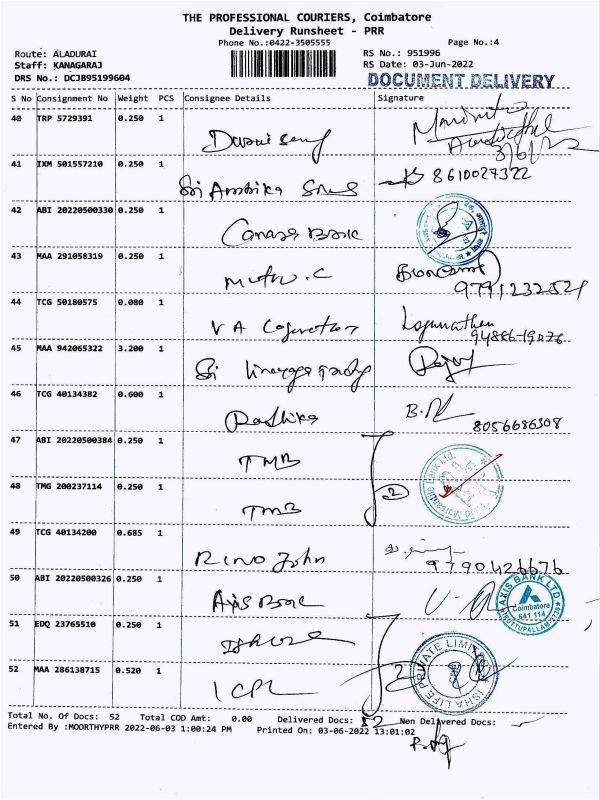 THE PROFESSIONAL COURIERS, Coimbatore
Delivery Runsheet - PRR
Phone No.:0422-3505555 Page No.:4
Route: ALADURAI RS No.: 951996
Staff: KANAGARAJ RS Date: 03-Jun-2022
DRS No.: DCJB95199604 DOCUMENT DELIVERY
S No Consignment No Weight PCS Consignee Details Signature
40 TRP 5729391 0.250 1
41 IXM 501557210 0.250 1 Sri Ambika 8610027322
42 ABI 20220500330 0.250 1 Canara Bank
43 MAA 291058319 0.250 1 Muthu.C
44 TCG 50180575 0.080 1 VA Logunathan
45 MAA 942065322 3.200 1 Sri
46 TCG 40134382 0.600 1 Radhika B. 8056686308
47 ABI 20220500384 0.250 1 TMB
48 TMG 200237114 0.250 1 TMB 2
49 TCG 40134200 0.685 1 Rino John 9790426676
50 ABI 20220500326 0.250 1 Axis Bank AXIS BANK LTD Coimbatore 641 114
51 EDQ 23765510 0.250 1
52 MAA 286138715 0.520 1 2 ISHA LIFE PRIVATE LIMITED
Total No. Of Docs: 52 Total COD Amt: 0.00 Delivered Docs: 52 Non Delivered Docs:
Entered By :MOORTHYPRR 2022-06-03 1:00:24 PM Printed On: 03-06-2022 13:01:02